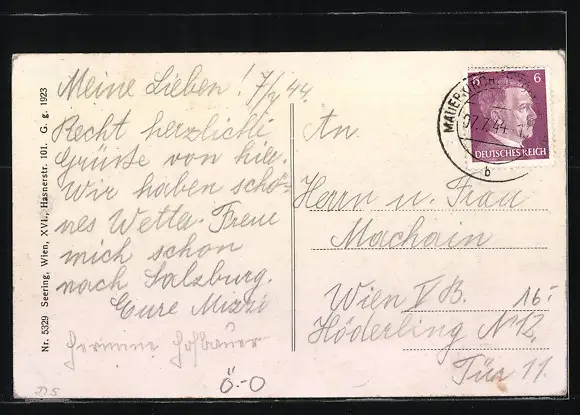 Meine Lieben! 7/7 44.
Recht herzliche
Grüsse von hier.
Wir haben schö-
nes Wetter. Freue
mich schon
nach Salzburg.
Eure Mizzi
Hermine
Ö.-O
An
Herrn u. Frau
Machain
Wien V B. 16.-
N 12.
Tür 11.
6
DEUTSCHES REICH
07.7.44
b
Nr. 5329 Seering, Wien, XVI., Hasnerstr. 101. G. g. 1923